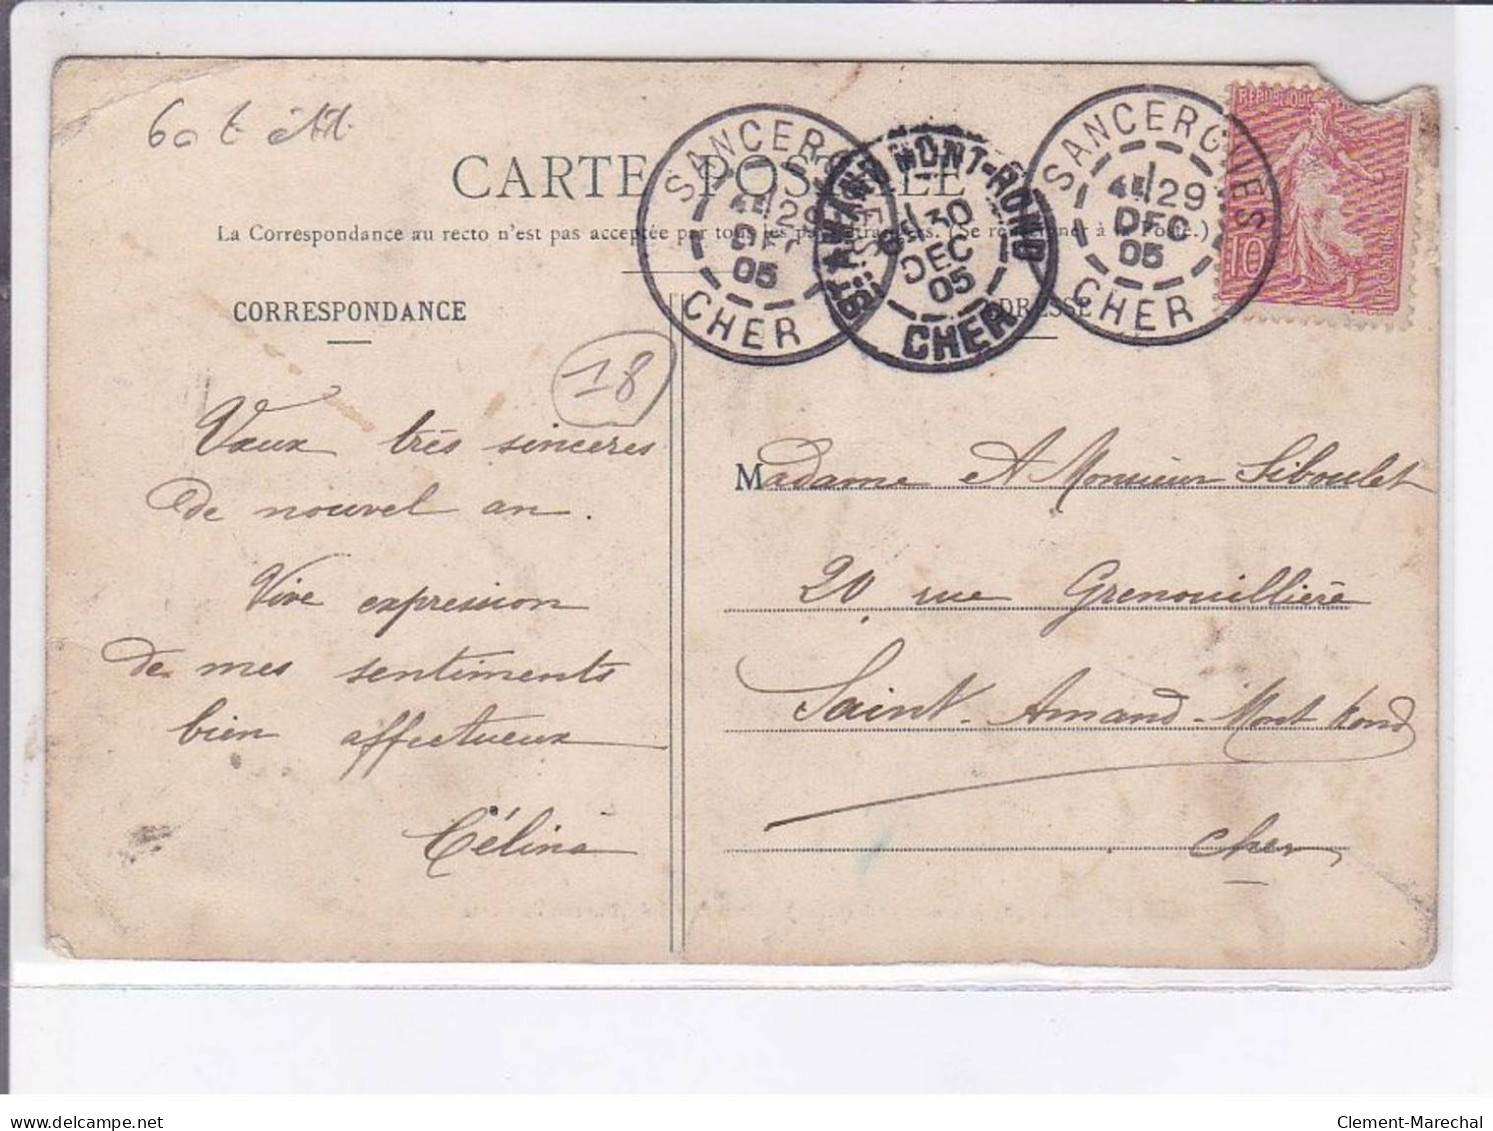 CARTE POSTALE
La Correspondance au recto n'est pas acceptée par tous les pays étrangers. (Se renseigner à la Poste.)
SANCERGUES
4E 29
DEC
05
CHER
ST AMAND MONT-ROND
30
DEC
05
CHER
SANCERGUES
4E 29
DEC
05
CHER
10
CORRESPONDANCE
ADRESSE
18
Vœux très sincères
de nouvel an.
Vive expression
de mes sentiments
bien affectueux
Célina
Madame et Monsieur Siboulet
20 rue Grenouillière
Saint-Amand-Mont Rond
Cher
delcampe.net
Clement-Marechal